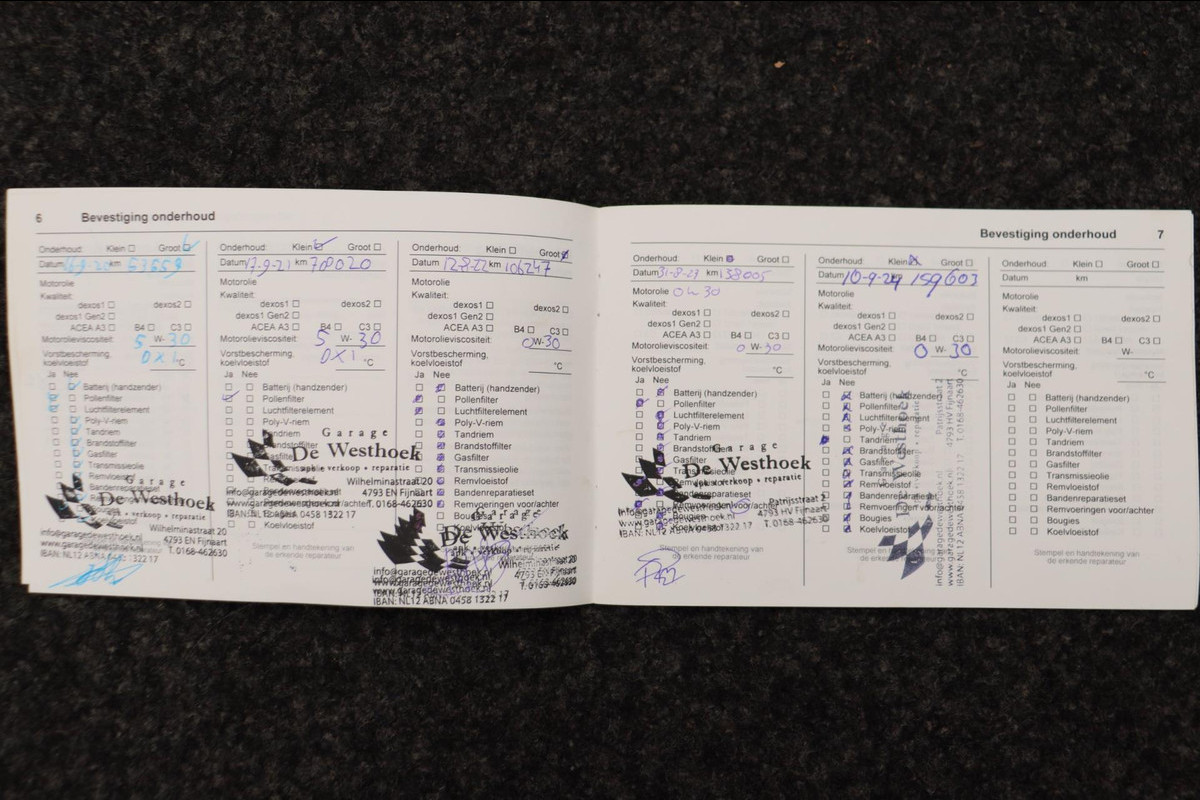 6 Bevestiging onderhoud
Onderhoud: Klein ☐ Groot ☑
Datum km 63659
Motorolie
Kwaliteit:
dexos1 ☐ dexos2 ☐
dexos1 Gen2 ☐
ACEA A3 ☐ B4 ☐ C3 ☐
Motorolieviscositeit: 5 W- 30
Vorstbescherming,
koelvloeistof °C
Ja Nee
Batterij (handzender)
Pollenfilter
Luchtfilterelement
Poly-V-riem
Tandriem
Brandstoffilter
Gasfilter
Transmissieolie
Garage
De Westhoek
apk • verkoop • reparatie
Wilhelminastraat 20
info@garagedewesthoek.nl 4793 EN Fijnaart
www.garagedewesthoek.nl T. 0168-462630
IBAN: NL12 ABNA 0458 1322 17
Onderhoud: Klein ☑ Groot ☐
Datum 17-9-21 km 78020
Motorolie
Kwaliteit:
dexos1 ☐ dexos2 ☐
dexos1 Gen2 ☐
ACEA A3 ☐ B4 ☐ C3 ☐
Motorolieviscositeit: 5 W- 30
Vorstbescherming,
koelvloeistof °C
Ja Nee
Batterij (handzender)
Pollenfilter
Luchtfilterelement
Poly-V-riem
Garage
De Westhoek
apk • verkoop • reparatie
Wilhelminastraat 20
info@garagedewesthoek.nl 4793 EN Fijnaart
www.garagedewesthoek.nl T. 0168-462630
IBAN: NL12 ABNA 0458 1322 17
Koelvloeistof
Stempel en handtekening van
de erkende reparateur
Onderhoud: Klein ☐ Groot ☑
Datum 12-8-22 km 106247
Motorolie
Kwaliteit:
dexos1 ☐ dexos2 ☐
dexos1 Gen2 ☐
ACEA A3 ☐ B4 ☐ C3 ☐
Motorolieviscositeit: 0 W- 30
Vorstbescherming,
koelvloeistof °C
Ja Nee
Batterij (handzender)
Pollenfilter
Luchtfilterelement
Poly-V-riem
Tandriem
Brandstoffilter
Gasfilter
Transmissieolie
Remvloeistof
Bandenreparatieset
Remvoeringen voor/achter
Garage
De Westhoek
apk • verkoop • reparatie
Wilhelminastraat 20
info@garagedewesthoek.nl 4793 EN Fijnaart
www.garagedewesthoek.nl T. 0168-462630
IBAN: NL12 ABNA 0458 1322 17
Bevestiging onderhoud 7
Onderhoud: Klein ☑ Groot ☐
Datum 31-8-23 km 138005
Motorolie 0w30
Kwaliteit:
dexos1 ☐ dexos2 ☐
dexos1 Gen2 ☐
ACEA A3 ☐ B4 ☐ C3 ☐
Motorolieviscositeit: 0 W- 30
Vorstbescherming,
koelvloeistof °C
Ja Nee
Batterij (handzender)
Pollenfilter
Luchtfilterelement
Poly-V-riem
Tandriem
Brandstoffilter
Gasfilter
Garage
De Westhoek
apk • verkoop • reparatie
Bandenreparatieset
Remvoeringen voor/achter
Patrijsstraat 2
info@garagedewesthoek.nl 4793 HV Fijnaart
www.garagedewesthoek.nl T. 0168-462630
IBAN: NL12 ABNA 0458 1322 17
Koelvloeistof
Stempel en handtekening van
de erkende reparateur
Onderhoud: Klein ☒ Groot ☐
Datum 10-9-24 km 159603
Motorolie
Kwaliteit:
dexos1 ☐ dexos2 ☐
dexos1 Gen2 ☐
ACEA A3 ☐ B4 ☐ C3 ☐
Motorolieviscositeit: 0 W- 30
Vorstbescherming,
koelvloeistof °C
Ja Nee
Batterij (handzender)
Pollenfilter
Luchtfilterelement
Poly-V-riem
Tandriem
Brandstoffilter
Gasfilter
Transmissieolie
Remvloeistof
Bandenreparatieset
Remvoeringen voor/achter
Bougies
Koelvloeistof
Stempel en handtekening van
de erkende reparateur
De Westhoek
Patrijsstraat 2
4793 HV Fijnaart
T. 0168-462630
info@garagedewesthoek.nl
www.garagedewesthoek.nl
IBAN: NL12 ABNA 0458 1322 17
Onderhoud: Klein ☐ Groot ☐
Datum km
Motorolie
Kwaliteit:
dexos1 ☐ dexos2 ☐
dexos1 Gen2 ☐
ACEA A3 ☐ B4 ☐ C3 ☐
Motorolieviscositeit: W-
Vorstbescherming,
koelvloeistof °C
Ja Nee
☐ ☐ Batterij (handzender)
☐ ☐ Pollenfilter
☐ ☐ Luchtfilterelement
☐ ☐ Poly-V-riem
☐ ☐ Tandriem
☐ ☐ Brandstoffilter
☐ ☐ Gasfilter
☐ ☐ Transmissieolie
☐ ☐ Remvloeistof
☐ ☐ Bandenreparatieset
☐ ☐ Remvoeringen voor/achter
☐ ☐ Bougies
☐ ☐ Koelvloeistof
Stempel en handtekening van
de erkende reparateur